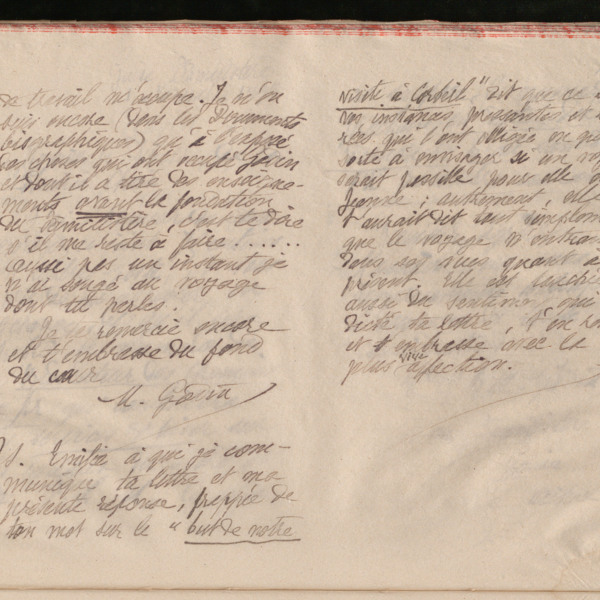 de travail m'occupe. Je n'en
suis encore (dans les Documents
biographiques) qu'à l'exposé
des choses qui ont occupé Godin
et dont il a tiré des enseigne-
ments avant la fondation
du familistère, c'est te dire
s'il me reste à faire......
aussi pas un instant je
n'ai songé au voyage
dont tu parles.
Je te remercie encore
et t'embrasse du fond
du cœur
M. Godin
P.S. Emilie à qui je com-
munique ta lettre et ma
présente réponse, frappée de
ton mot sur le "but de notre
visite à Corbeil" dit que ce
tes instances, pressantes et
qui l'ont obligée en
sorte à envisager si un
serait possible pour elle
Jeanne; autrement, elle
t'aurait dit tout simplement
que le voyage n'entrait
dans ses vues quant à
présent. Elle est touchée
aussi du sentiment qui
dicté ta lettre, t'en
et t'embrasse avec la
plus vive affection.